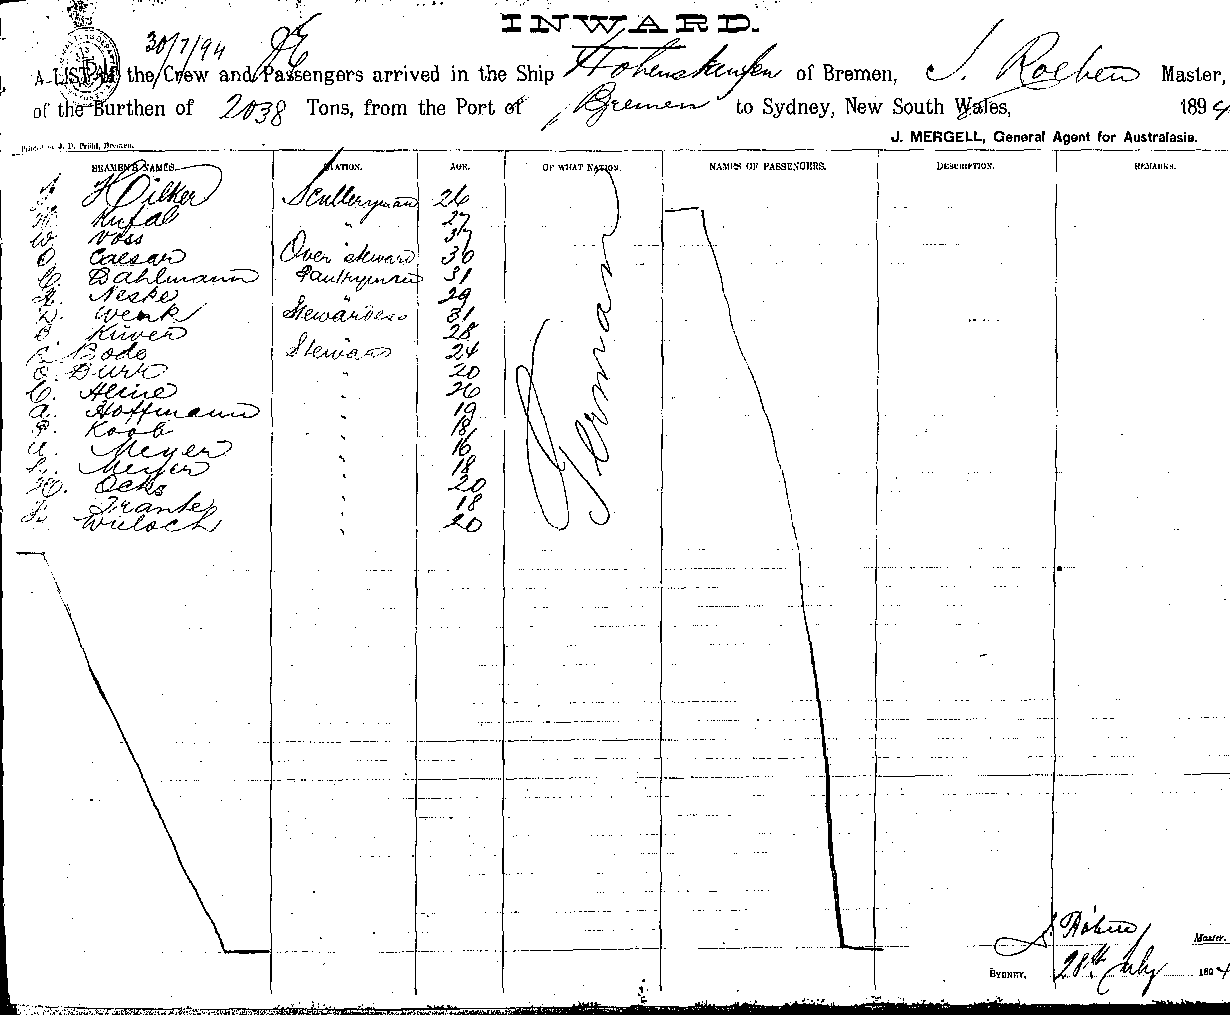 INWARD.
30/7/94
A LIST of the Crew and Passengers arrived in the Ship Hohenstaufen of Bremen, J. Roeben Master,
of the Burthen of 2038 Tons, from the Port of Bremen to Sydney, New South Wales, 1894
J. MERGELL, General Agent for Australasia.
Printed by J. D. Prühl, Bremen.
SEAMEN'S NAMES. STATION. AGE. OF WHAT NATION. NAMES OF PASSENGERS. DESCRIPTION. REMARKS.
Dilker Sculleryman 26
Kufal " 27
W. Voss " 37
O. Caesar Over steward 30
C. Dahlmann Pantryman 31
Neske 29
Wenk Stewardess 31
Küver 28
Bode Steward 24
Dürr " 20
C. Heine " 26
A. Hoffmann " 19
Koob " 18
Meyer " 16
Meyer " 18
Ochs " 20
Franke " 18
Wieloch " 20
German
Master.
SYDNEY, 28th July 1894